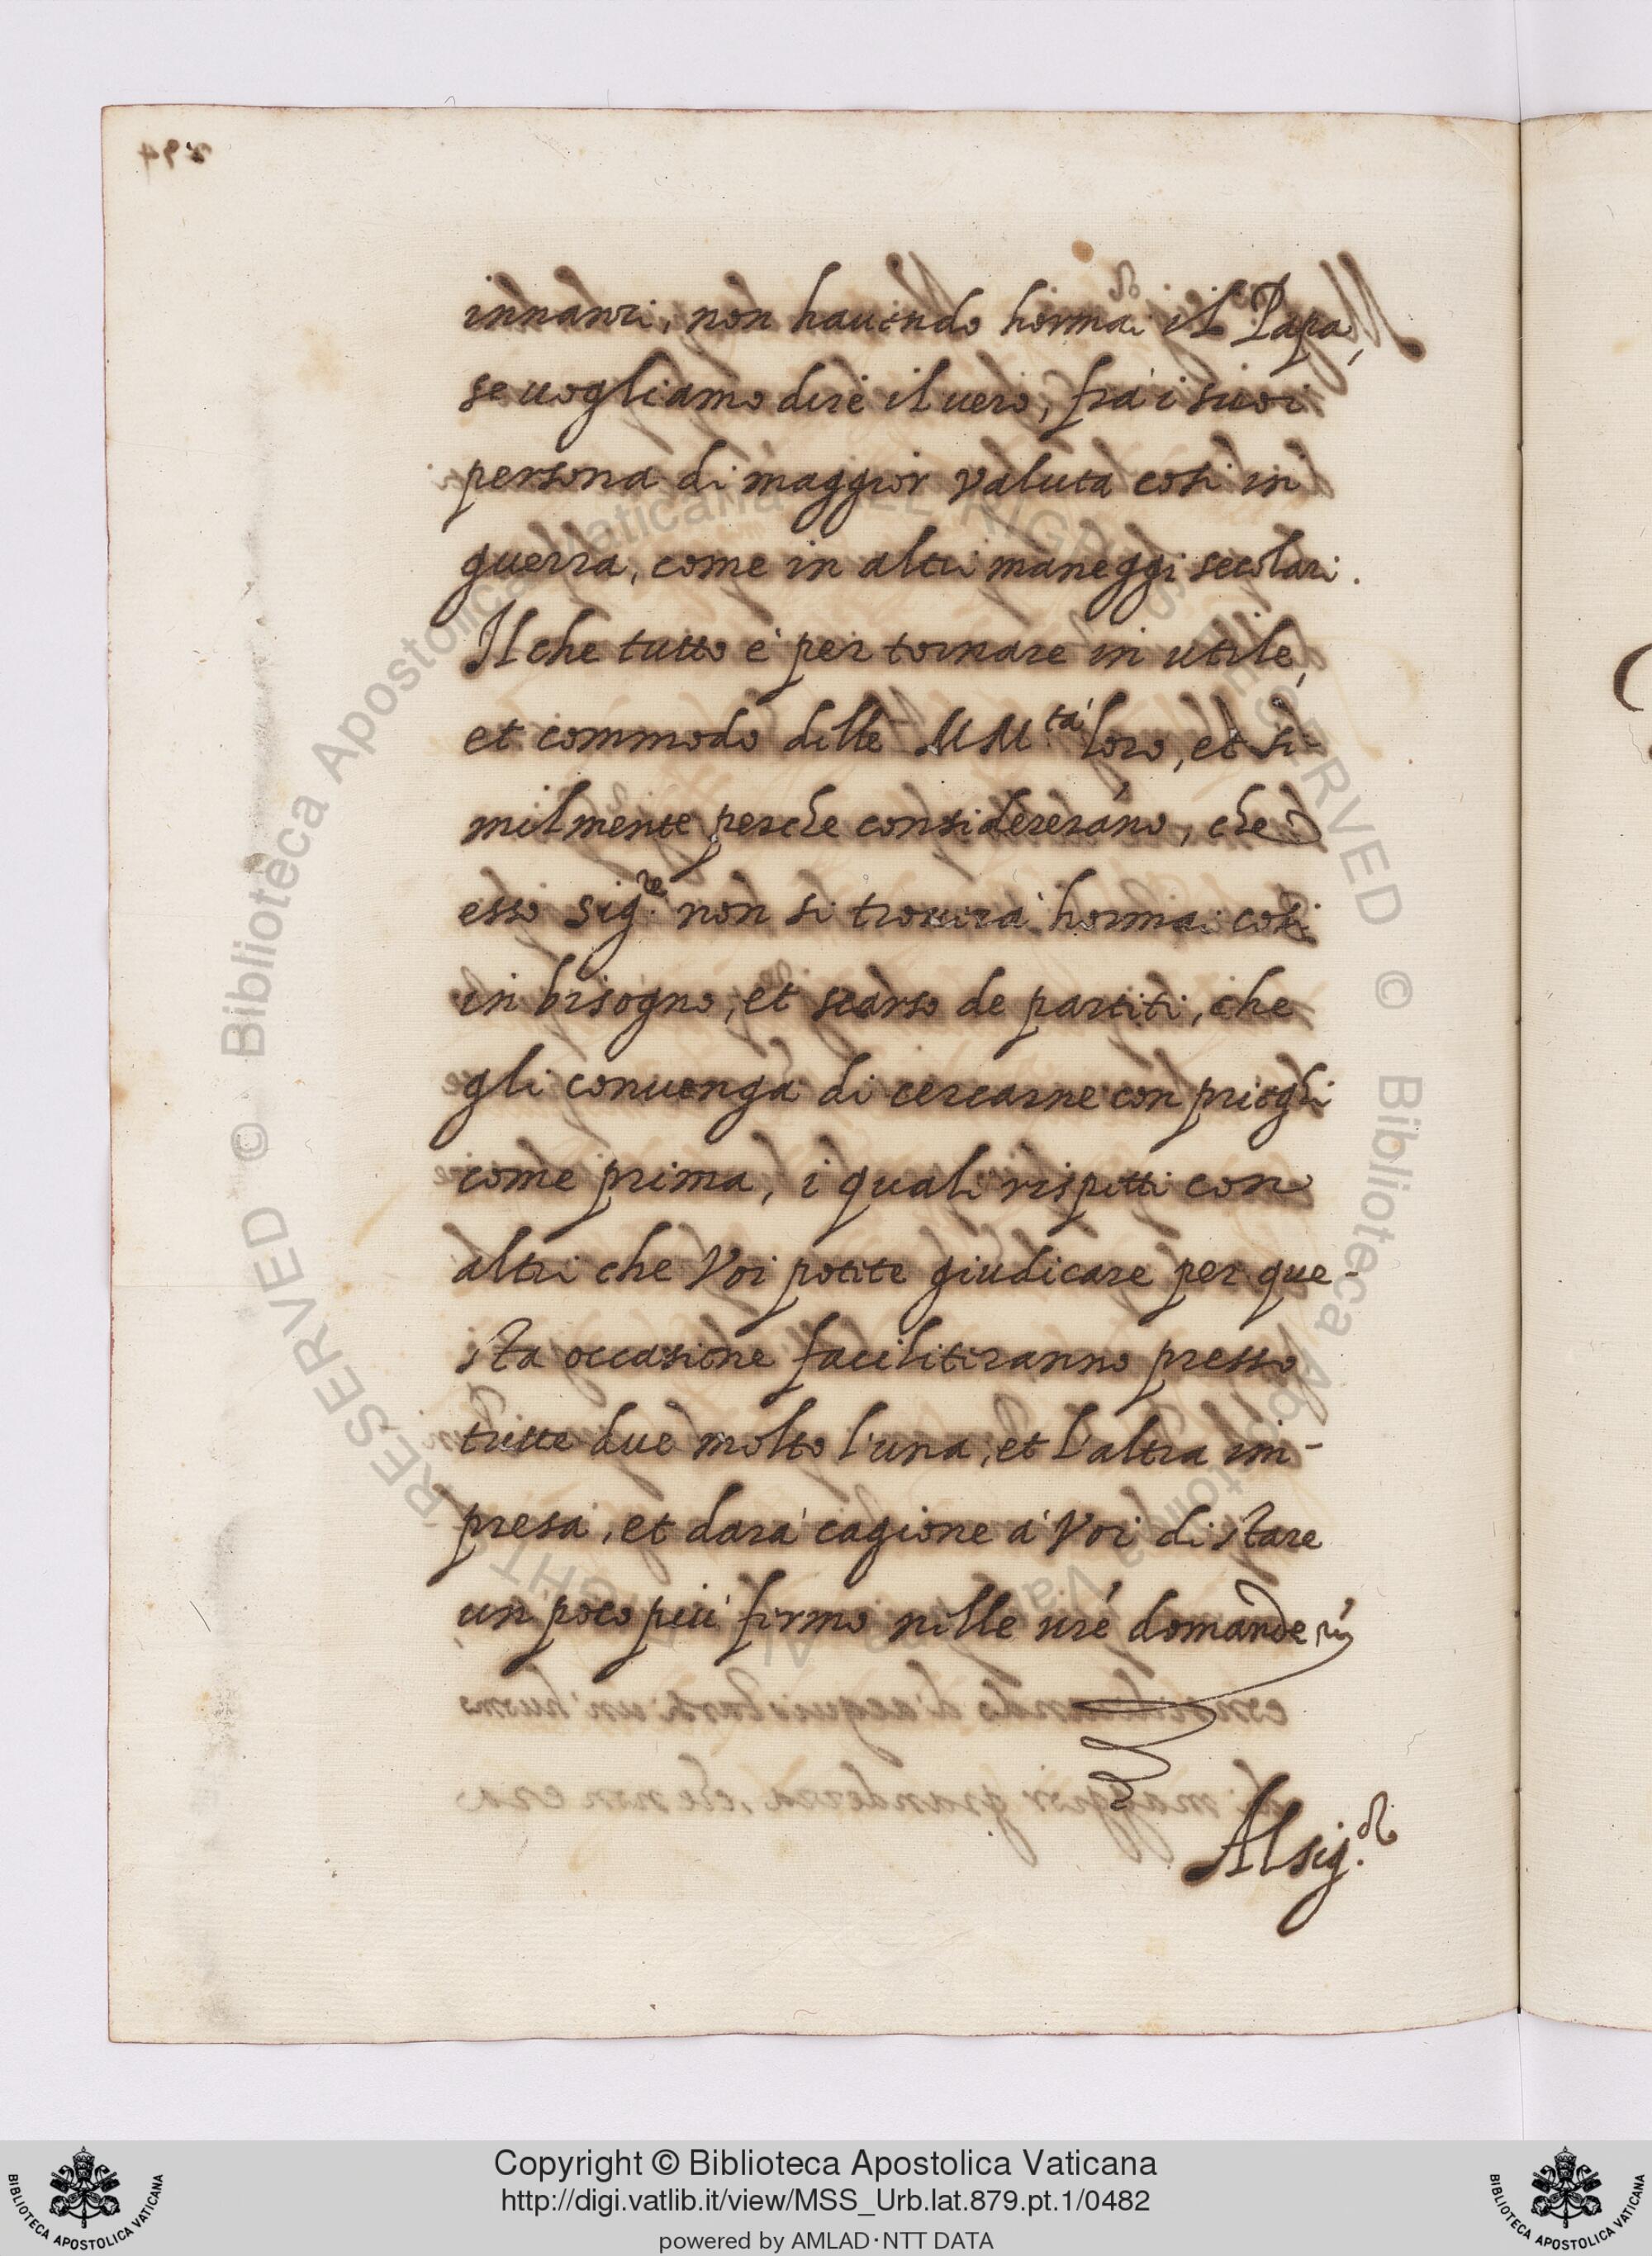 innanzi, non hauendo hormai il Papa,
se uogliamo dire il uero, frà i suoi
persona di maggior valuta cosi in
guerra, come in altri maneggi secolari.
Il che tutto è per tornare in utile,
et commodo delle MM.tà loro, et si-
milmente perche considererāno, che
esso Sig.re non si trouerà hormai cosi
in bisogno, et scarso de partiti, che
gli conuenga di cercarne con prieghi
come prima, i quali rispetti con
altri che Voi potete giudicare per que-
sta occasione faciliteranno presso
tutte due molto l'una, et l'altra im-
presa, et darà cagione à Voi di stare
un poco più fermo nelle ure domande
Al sig.
Copyright © Biblioteca Apostolica Vaticana
http://digi.vatlib.it/view/MSS_Urb.lat.879.pt.1/0482
powered by AMLAD·NTT DATA
BIBLIOTECA APOSTOLICA VATICANA
BIBLIOTECA APOSTOLICA VATICANA